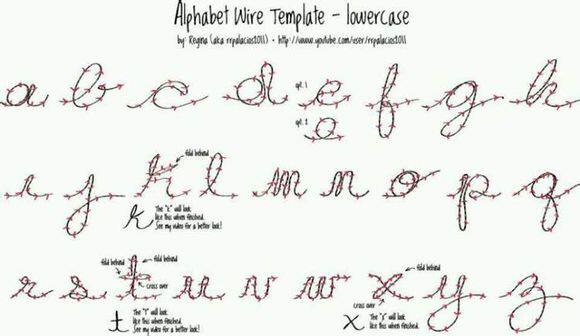 Alphabet Wire Template - lowercase
by: Regina (aka rrpalacios2011) • http://www.youtube.com/user/rrpalacios2011
opt. 1
a b c d e f g h
opt. 2
e
fold behind
i j k l m n o p q
k
The "k" will look
like this when finished.
See my video for a better look!
fold behind
fold behind
fold behind
r s t u v w x y z
cross over
cross over
t
The "t" will look
like this when finished.
See my video for a better look!
x
The "x" will look
like this when finished.